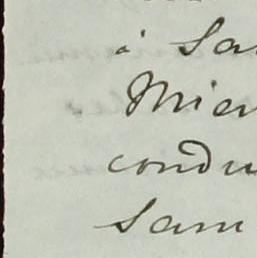 à Sa
Mier
condu
Sam